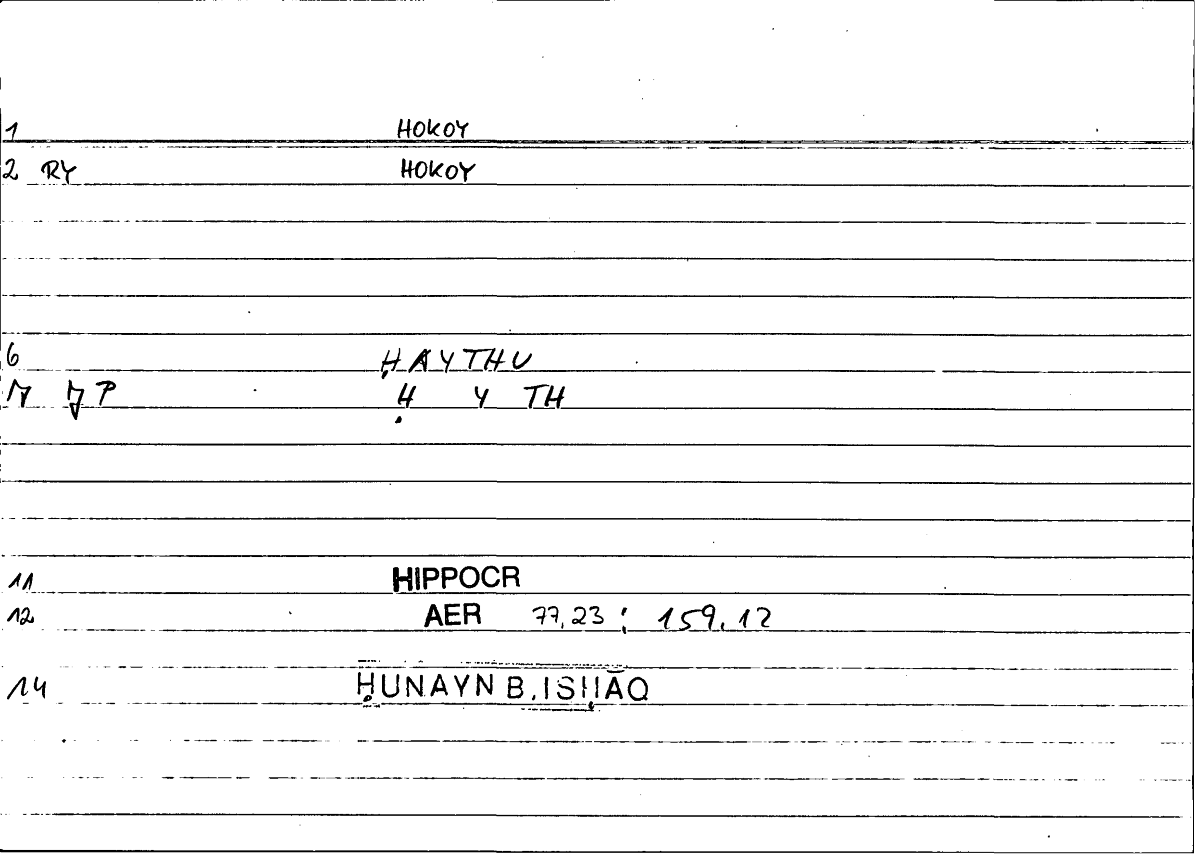 1 HOKOY
2 RY HOKOY
6 ḤAYTHU
7 JP Ḥ Y TH
11 HIPPOCR
12 AER 77,23 ; 159,12
14 ḤUNAYN B. ISḤĀQ